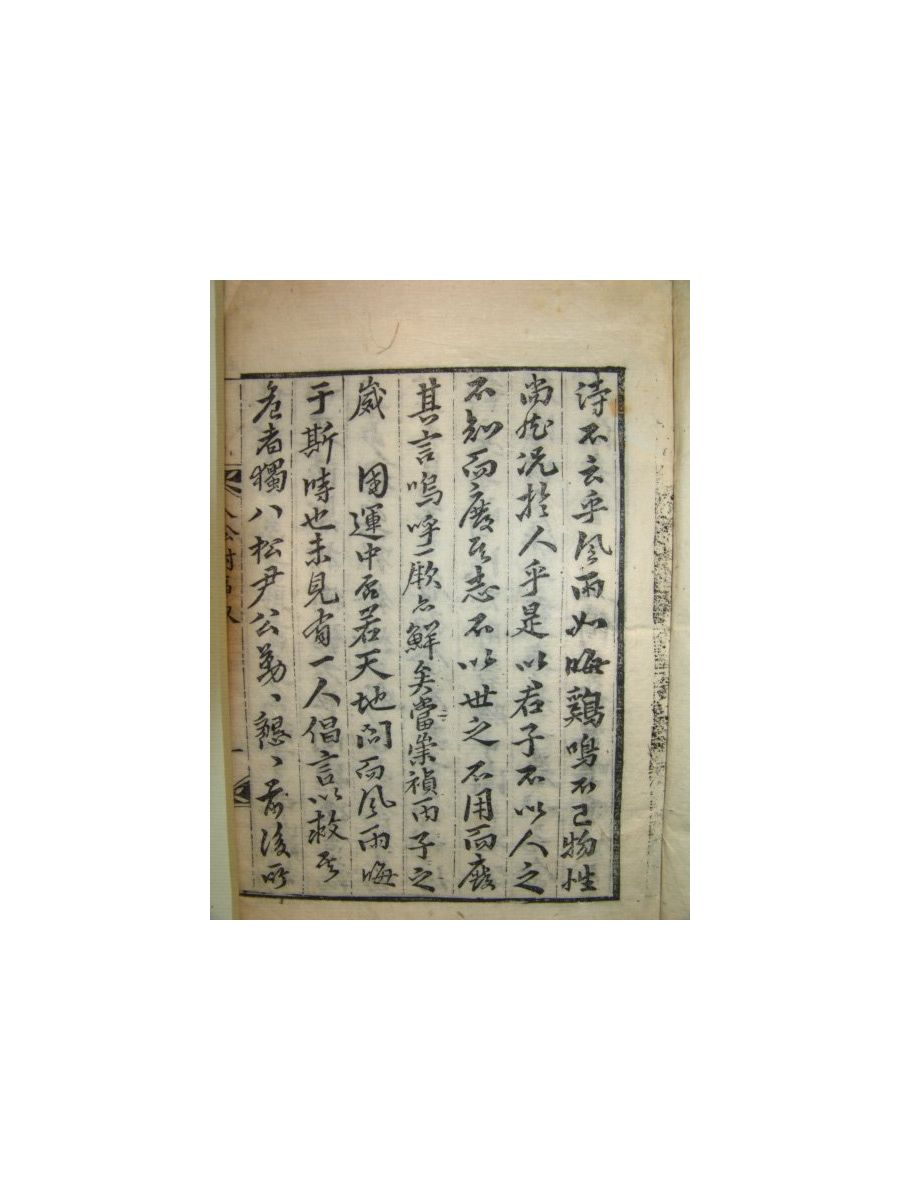 詩不云乎風雨如晦鷄鳴不已物性
尚然況於人乎是以君子不以人之
不知而廢其志不以世之不用而廢
其言嗚呼厥亦鮮矣當崇禎丙子之
歲 國運中否若天地閉而風雨晦
于斯時也未見有一人倡言以救其
危者獨八松尹公勤、懇、前後所
八松封事
一